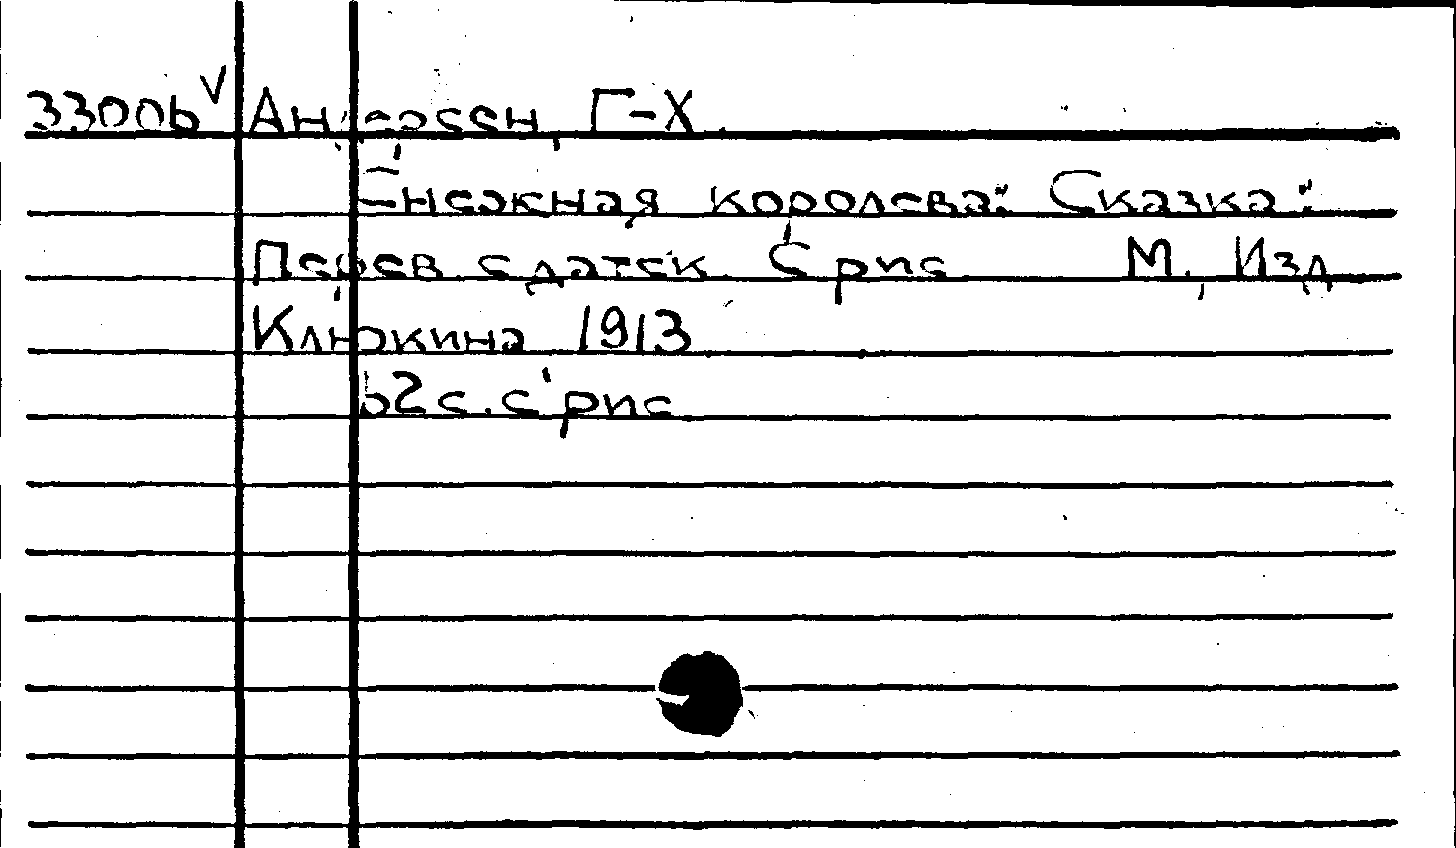 33006 V Андерсен, Г-Х.
Снежная королева: Сказка:
Перев. с датск. С рис. М., Изд.
Клюкина 1913
62 с. с рис.